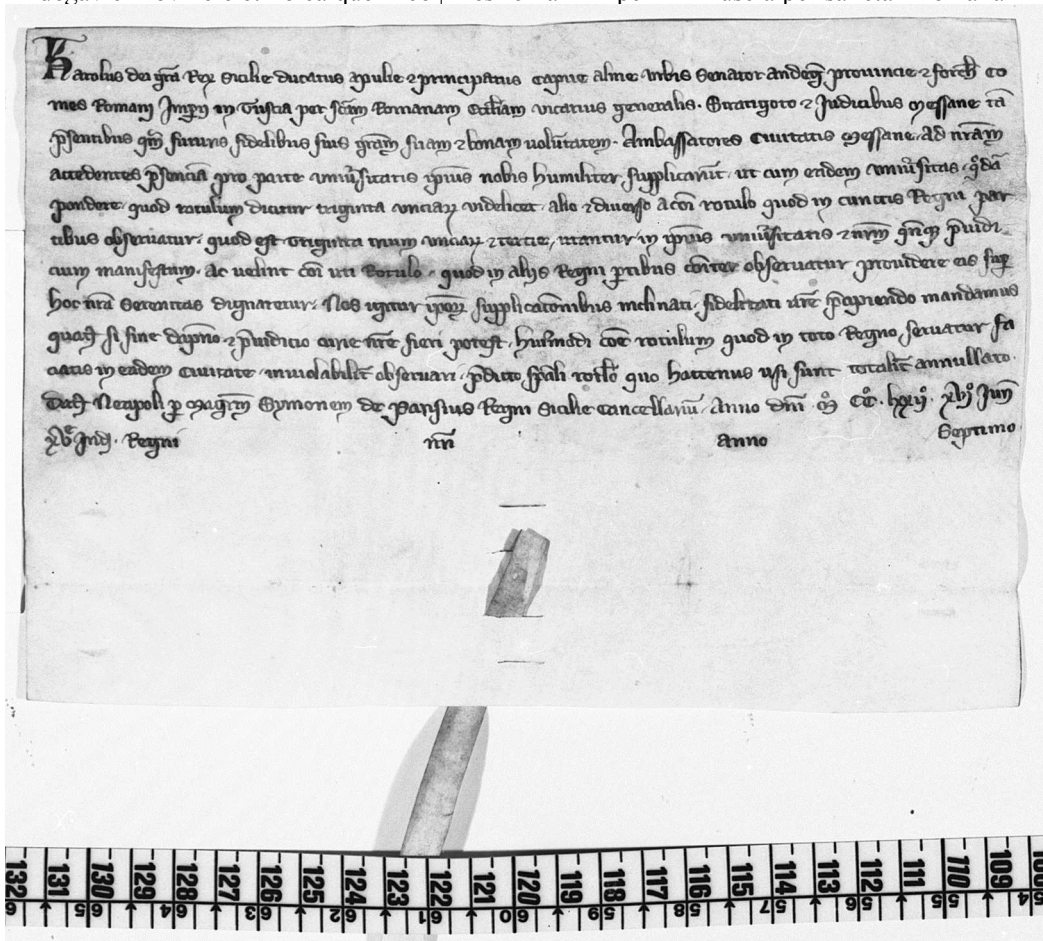 Karolus dei gra Rex Sicilie ducatus Apulie ⁊ principatus Capue alme urbis Senator andeg̃ provincie ⁊ forch̃ Co
mes Romani Imperii in Tuscia per scam̃ Romanam Eccliam vicarius generalis. Stratigoto ⁊ Judicibus Messane tã
p̃sentibus q̃m futuris fidelibus suis gram̃ suam ⁊ bonam voluntatem. Ambassatores Civitatis Messane ad nram̃
accedentes p̃sencia pro parte uniṽsitatis ip̃ius nobis humiliter supplicarũt. ut cum eadem uniṽsitas q̊dã
pondere quod rotulum dicitur triginta unciaꝝ videlicet alio ⁊ diverso a coĩ rotulo quod in cunctis Regni par
tibus observatur. quod est triginta trium unciaꝝ ⁊ tercie, utantur in ip̃ius uniṽsitatis ⁊ nrm̃ p̃iudi
cium manifestum. ac velint coĩ uti Rotulo. quod in aliis Regni p̱tibus coĩter observatur providere eis sup̱
hoc nra Serenitas dignaretur. Nos igitur ip̃oꝝ supplicatoñibus inclinati. fidelitati vr̃e p̃cipiendo mandamus
quat̃ si sine dapno ⁊ p̃iudicio curie nr̃e fieri potest. huiusmodi coẽ rotulum quod in toto Regno servatur fa
ciatis in eadem Civitate inviolabilit̃ observari. p̃dicto sp̃ali rotl̃o quo hactenus usi sunt totalit̃ annullato.
Dat̃ Neapoli ꝑ Magr̃m Symonem de Parisius Regni Sicilie Cancellariũ. Anno dñi. M̊. CC̊. lxxij̊. xvj Junĩ
xv̊ Ind̃. Regni nr̃i anno Septimo.
132 131 130 129 128 127 126 125 124 123 122 121 120 119 118 117 116 115 114 113 112 111 110 109 108
65 64 63 62 61 60 59 58 57 56 55 54